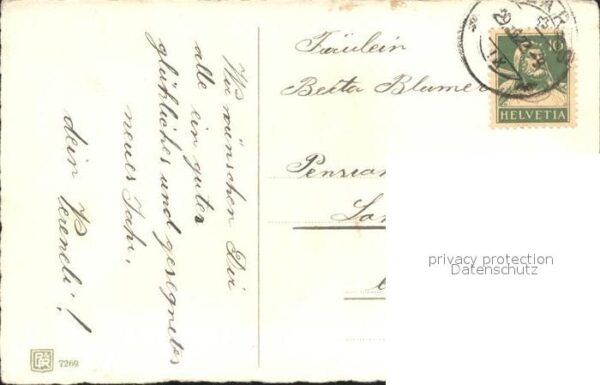 Wir wünschen Dir
alle ein gutes
glückliches und gesegnetes
neues Jahr.
dein Vreneli!
Fräulein
Berta Blumer
10
HELVETIA
privacy protection
Datenschutz
7269